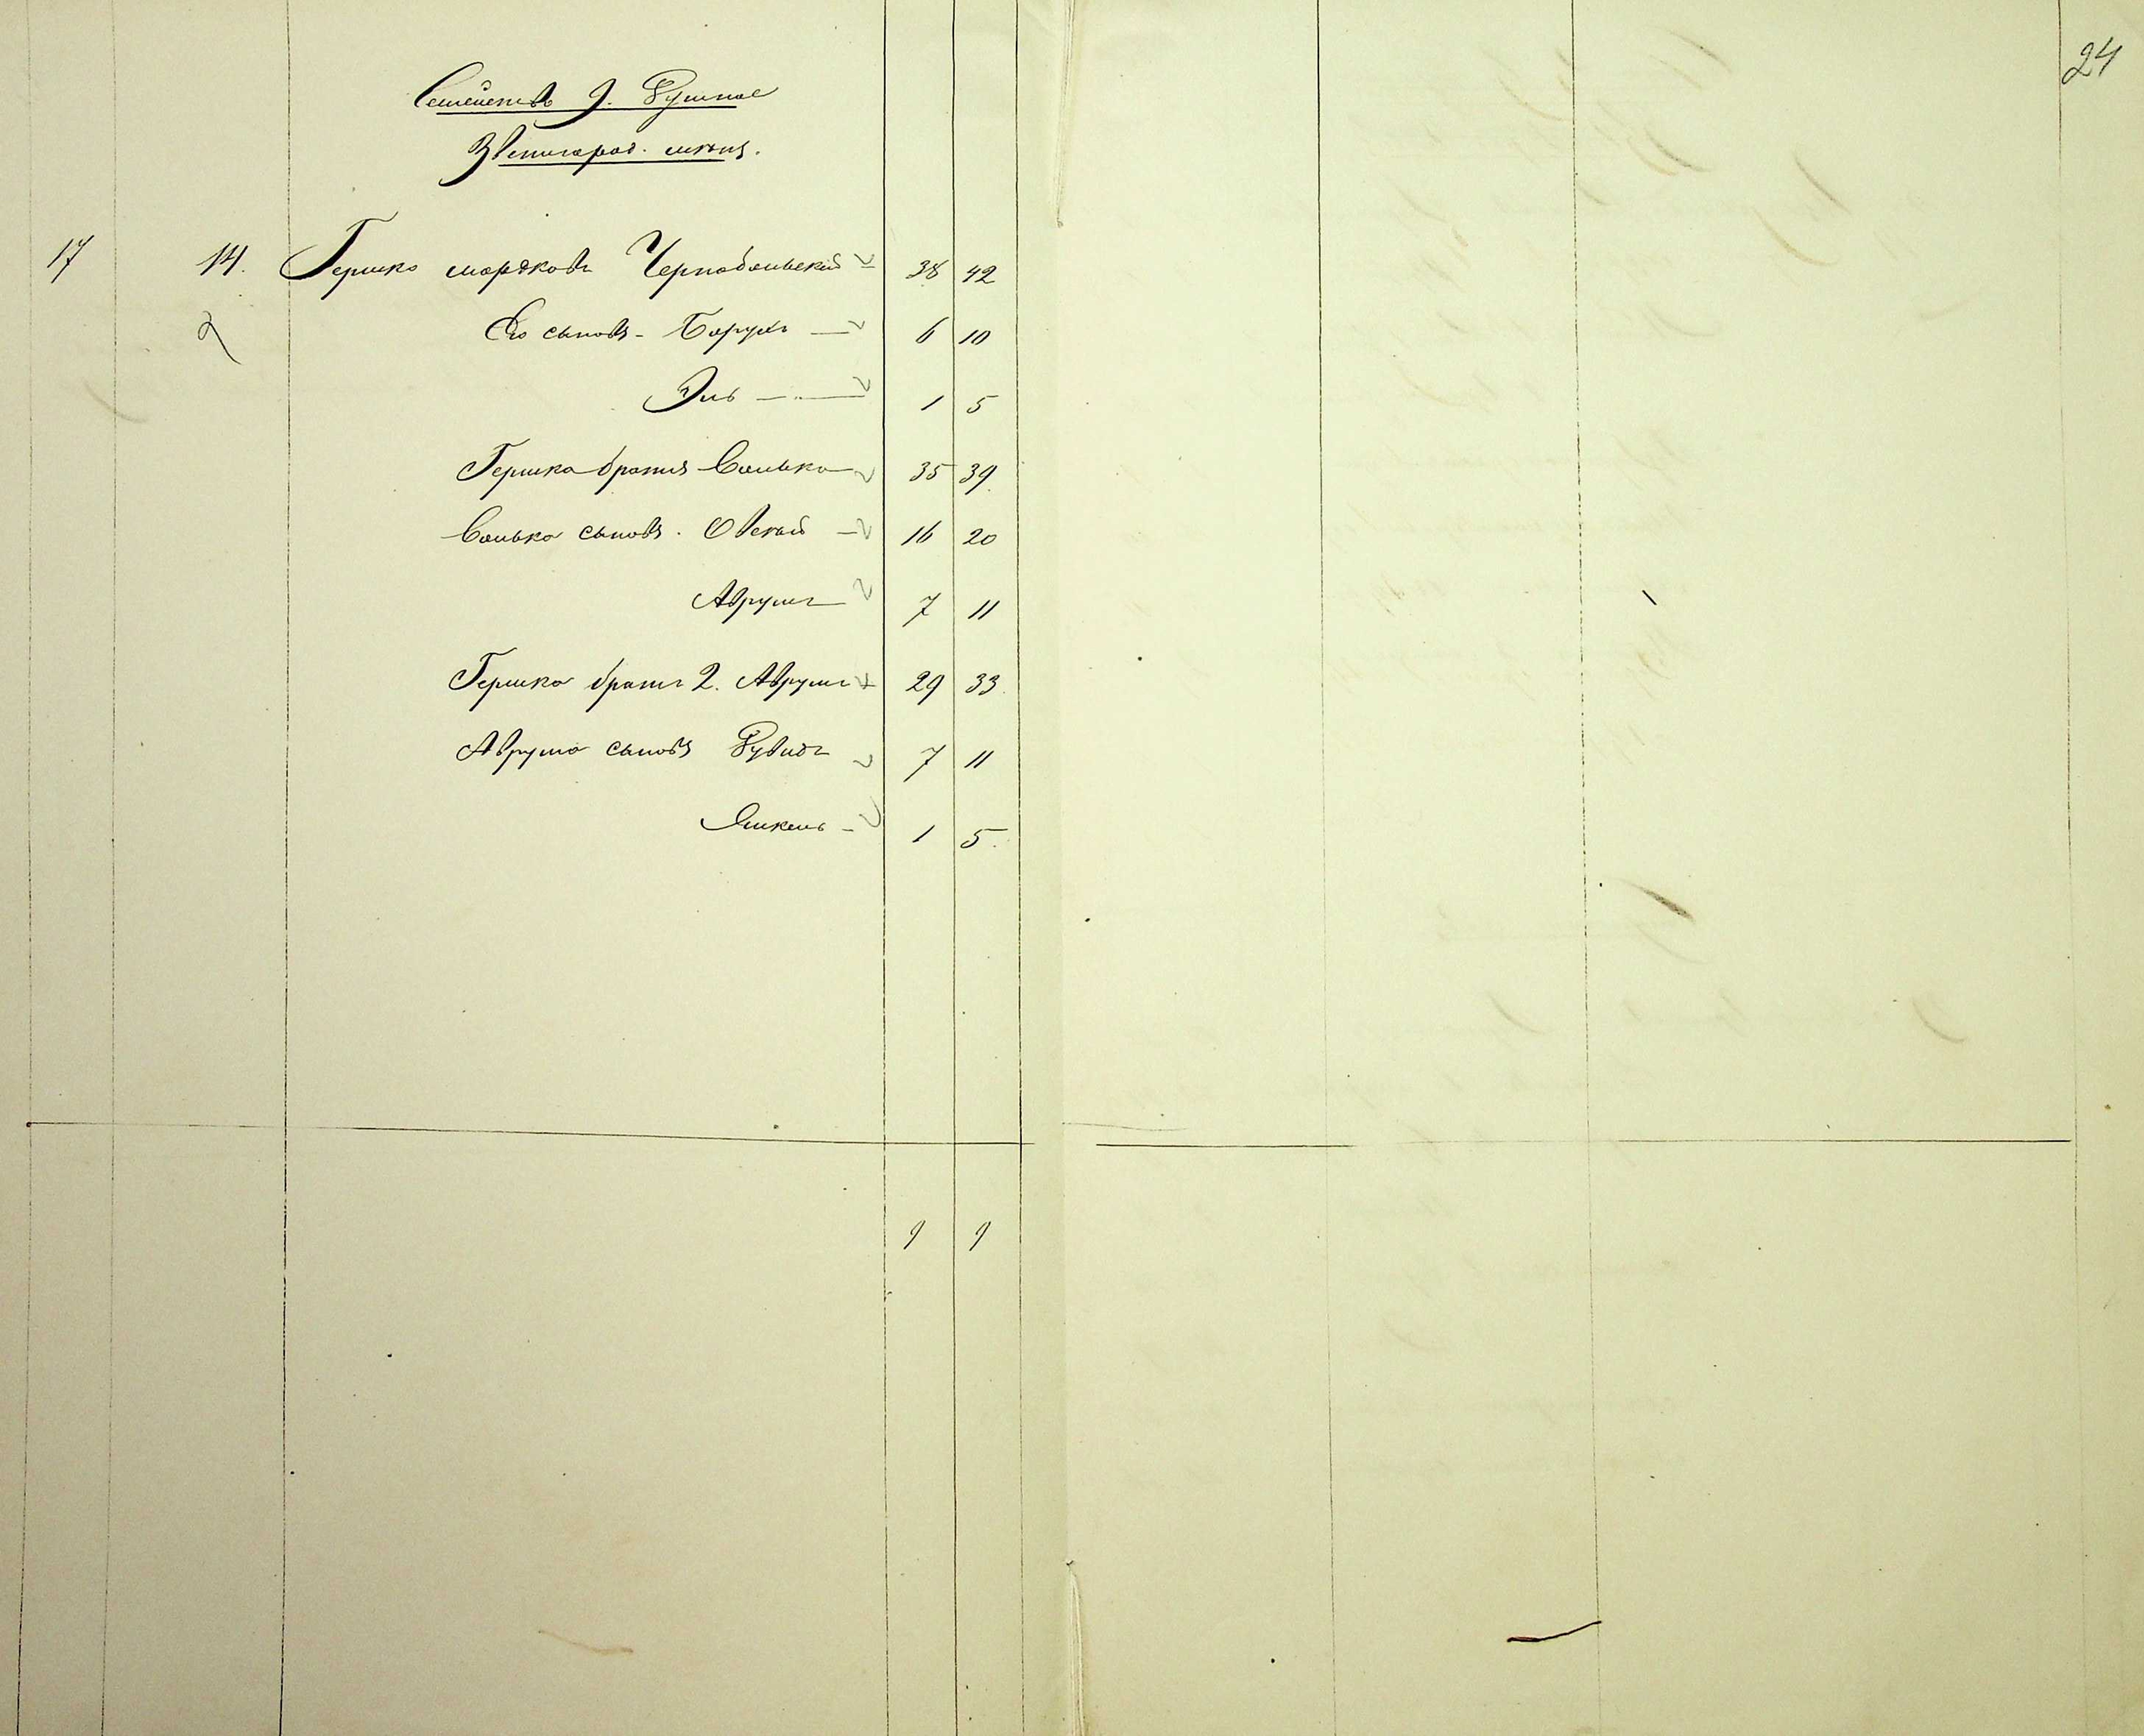 24
Семействъ д. Рушпое
Звенигород. мѣщ.
17 14. Гершко Мордковъ Чернобыльский 38 42
Его сыновья - Борухъ 6 10
Эль 1 5
Гершка братья Волько 35 39
Волька сыновья. Овсей 16 20
Аврумъ 7 11
Гершка братъ 2. Аврумъ 29 33
Аврума сыновья Рувинъ 7 11
Янкель 1 5.
9 9